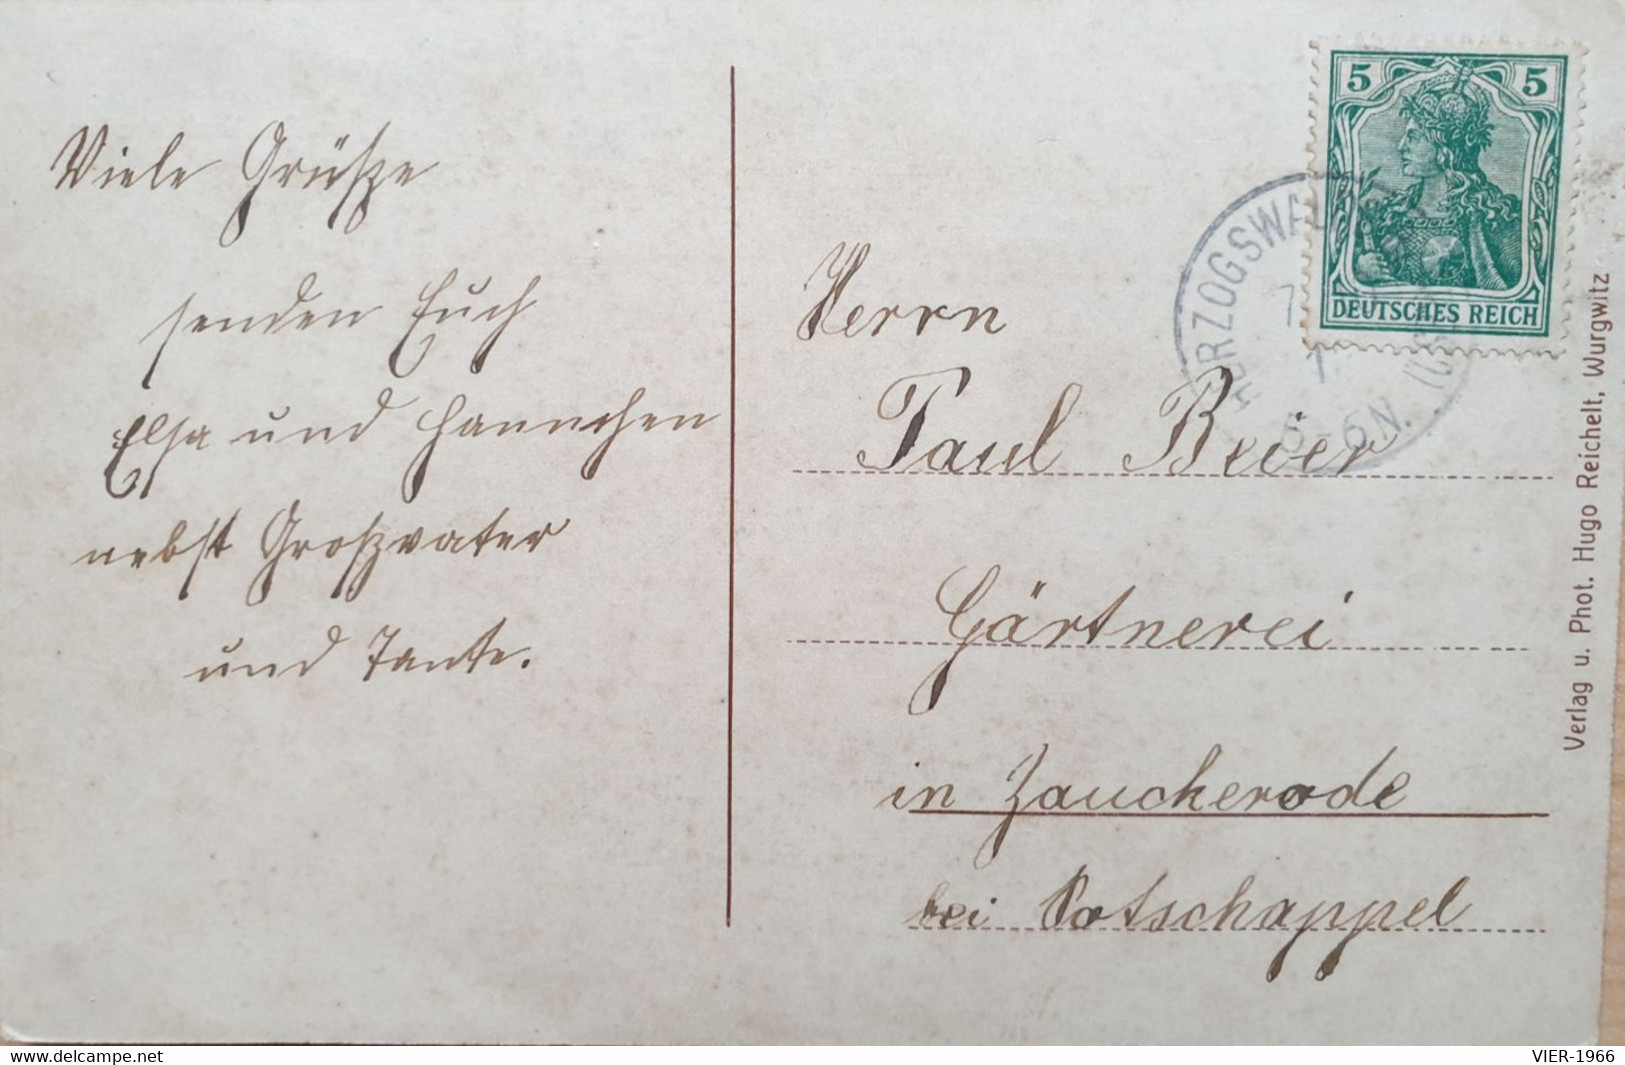 Viele Grüße
senden Euch
Elsa und Hannchen
nebst Großvater
und Tante.
5 5
DEUTSCHES REICH
HERZOGSWAL
7
5-6N.
Herrn
Paul Beier
Gärtnerei
in Zauckerode
bei Potschappel
Verlag u. Phot. Hugo Reichelt, Wurgwitz
delcampe.net
VIER-1966